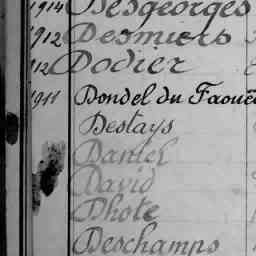 1914 Desgeorges
1912 Desmiers
912 Dodier
1911 Dondel du Faouë
Destays
Daniel
David
Dhote
Deschamps